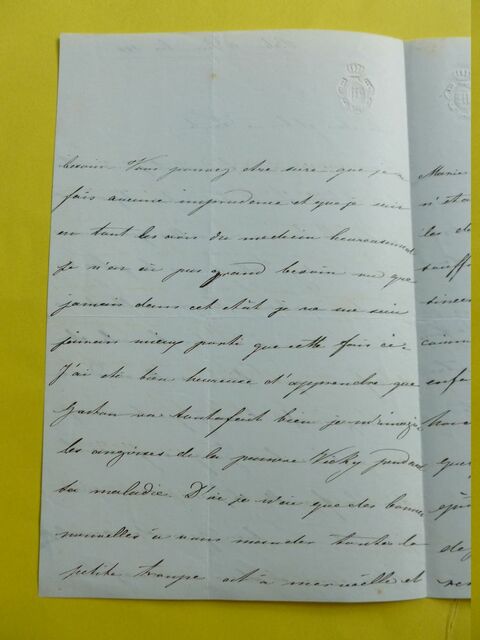 besoin Vous pouvez etre sure que je
fais aucune imprudence et que je suis
en tout les avis du medecin heureusement
Je n'en ai pas grand besoin vu que
jamais dans cet état je ne me suis
jamais mieux porté que cette fois ci.
J'ai été bien heureuse d'apprendre que
Gaston va toutafait bien je m'imagine
les angoisses de la pauvre Vicky pendant
sa maladie. D'ici je n'ai que des bonnes
nouvelles a vous mander toute la
petite troupe est a merveille et
n'éta
les d
souff
enfa
que